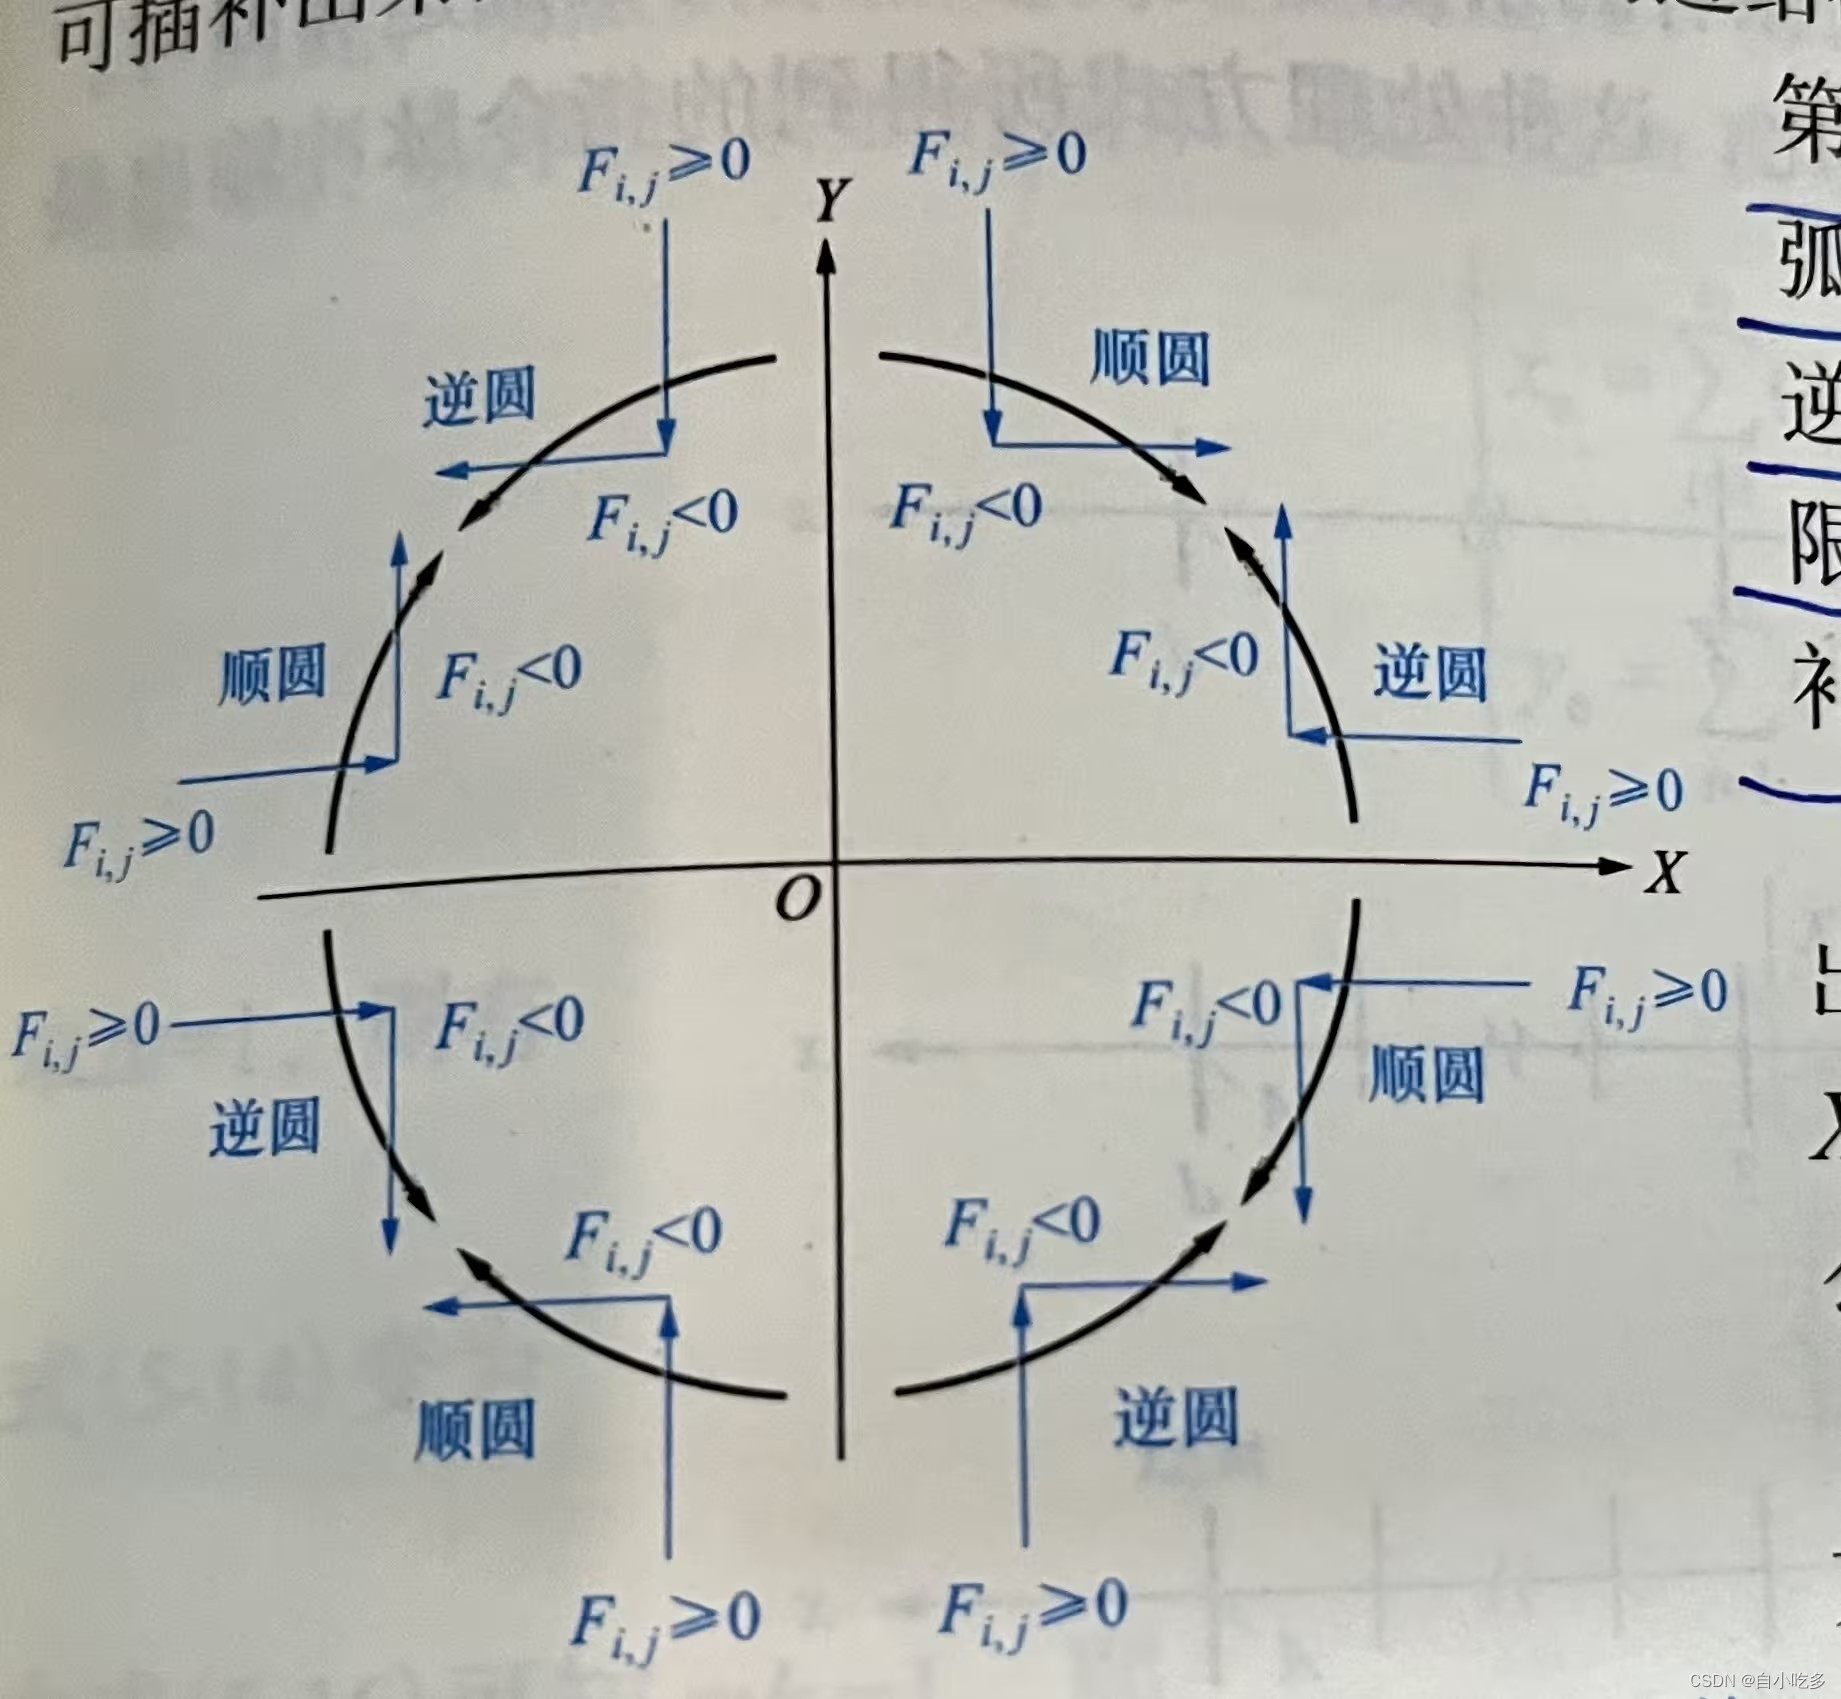 可插补出
第
F_{i,j}≥0
F_{i,j}≥0
Y
弧
逆圆
顺圆
逆
F_{i,j}<0
F_{i,j}<0
限
顺圆
F_{i,j}<0
F_{i,j}<0
逆圆
F_{i,j}≥0
F_{i,j}≥0
O
X
F_{i,j}≥0
F_{i,j}<0
F_{i,j}<0
F_{i,j}≥0
逆圆
顺圆
F_{i,j}<0
F_{i,j}<0
顺圆
逆圆
F_{i,j}≥0
F_{i,j}≥0
CSDN @自小吃多